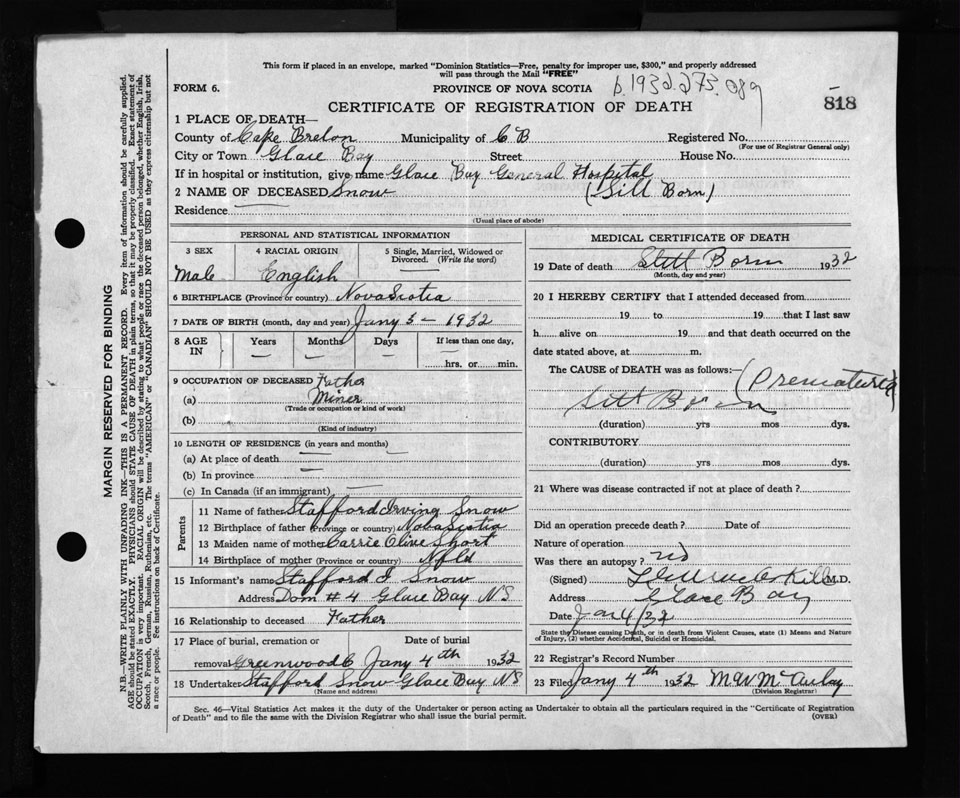 This form if placed in an envelope, marked "Dominion Statistics—Free, penalty for improper use, $300," and properly addressed
will pass through the Mail "FREE"
FORM 6. PROVINCE OF NOVA SCOTIA b.1932.273.089
CERTIFICATE OF REGISTRATION OF DEATH 818
1 PLACE OF DEATH—
County of Cape Breton Municipality of C B Registered No.
(For use of Registrar General only)
City or Town Glace Bay Street House No.
If in hospital or institution, give name Glace Bay General Hospital
2 NAME OF DECEASED Snow (Still Born)
Residence
(Usual place of abode)
PERSONAL AND STATISTICAL INFORMATION
3 SEX 4 RACIAL ORIGIN 5 Single, Married, Widowed or
Divorced. (Write the word)
Male English —
6 BIRTHPLACE (Province or country) Nova Scotia
7 DATE OF BIRTH (month, day and year) Jany 3 – 1932
8 AGE IN Years Months Days If less than one day,
— — — hrs. or min.
9 OCCUPATION OF DECEASED Father
(a) Miner
(Trade or occupation or kind of work)
(b)
(Kind of industry)
10 LENGTH OF RESIDENCE (in years and months)
(a) At place of death
(b) In province
(c) In Canada (if an immigrant)
Parents
11 Name of father Stafford Irving Snow
12 Birthplace of father (Province or country) Nova Scotia
13 Maiden name of mother Carrie Olive Short
14 Birthplace of mother (Province or country) Nfld
15 Informant's name Stafford I Snow
Address Dom #4 Glace Bay NS
16 Relationship to deceased Father
17 Place of burial, cremation or Date of burial
removal Greenwood C Jany 4th 1932
18 Undertaker Stafford Snow Glace Bay NS
(Name and address)
MEDICAL CERTIFICATE OF DEATH
19 Date of death Still Born 1932
(Month, day and year)
20 I HEREBY CERTIFY that I attended deceased from
19 to 19 that I last saw
h alive on 19 and that death occurred on the
date stated above, at m.
The CAUSE of DEATH was as follows:— (Premature)
Still Born
(duration) yrs mos dys.
CONTRIBUTORY
(duration) yrs mos dys.
21 Where was disease contracted if not at place of death?
Did an operation precede death? Date of
Nature of operation
Was there an autopsy? no
(Signed) M.D.
Address Glace Bay
Date Jan 4/32
State the Disease causing Death, or in death from Violent Causes, state (1) Means and Nature
of Injury, (2) whether Accidental, Suicidal or Homicidal.
22 Registrar's Record Number
23 Filed Jany 4th 1932 M W McAulay
(Division Registrar)
Sec. 46—Vital Statistics Act makes it the duty of the Undertaker or person acting as Undertaker to obtain all the particulars required in the "Certificate of Registration
of Death" and to file the same with the Division Registrar who shall issue the burial permit. (OVER)
MARGIN RESERVED FOR BINDING
N.B.—WRITE PLAINLY WITH UNFADING INK—THIS IS A PERMANENT RECORD. Every item of information should be carefully supplied.
AGE should be stated EXACTLY. PHYSICIANS should STATE CAUSE OF DEATH in plain terms, so that it may be properly classified. Exact statement of
OCCUPATION is very important. RACIAL ORIGIN will be described by stating to what people or race the deceased person belonged, whether English, Irish,
Scotch, French, German, Russian, Ruthenian, etc. The terms "AMERICAN" or "CANADIAN" SHOULD NOT BE USED as they express citizenship but not
a race or people. See instructions on back of Certificate.